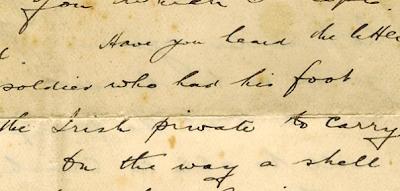 you
Have you heard the
soldier who had his foot
the Irish private to carry
On the way a shell